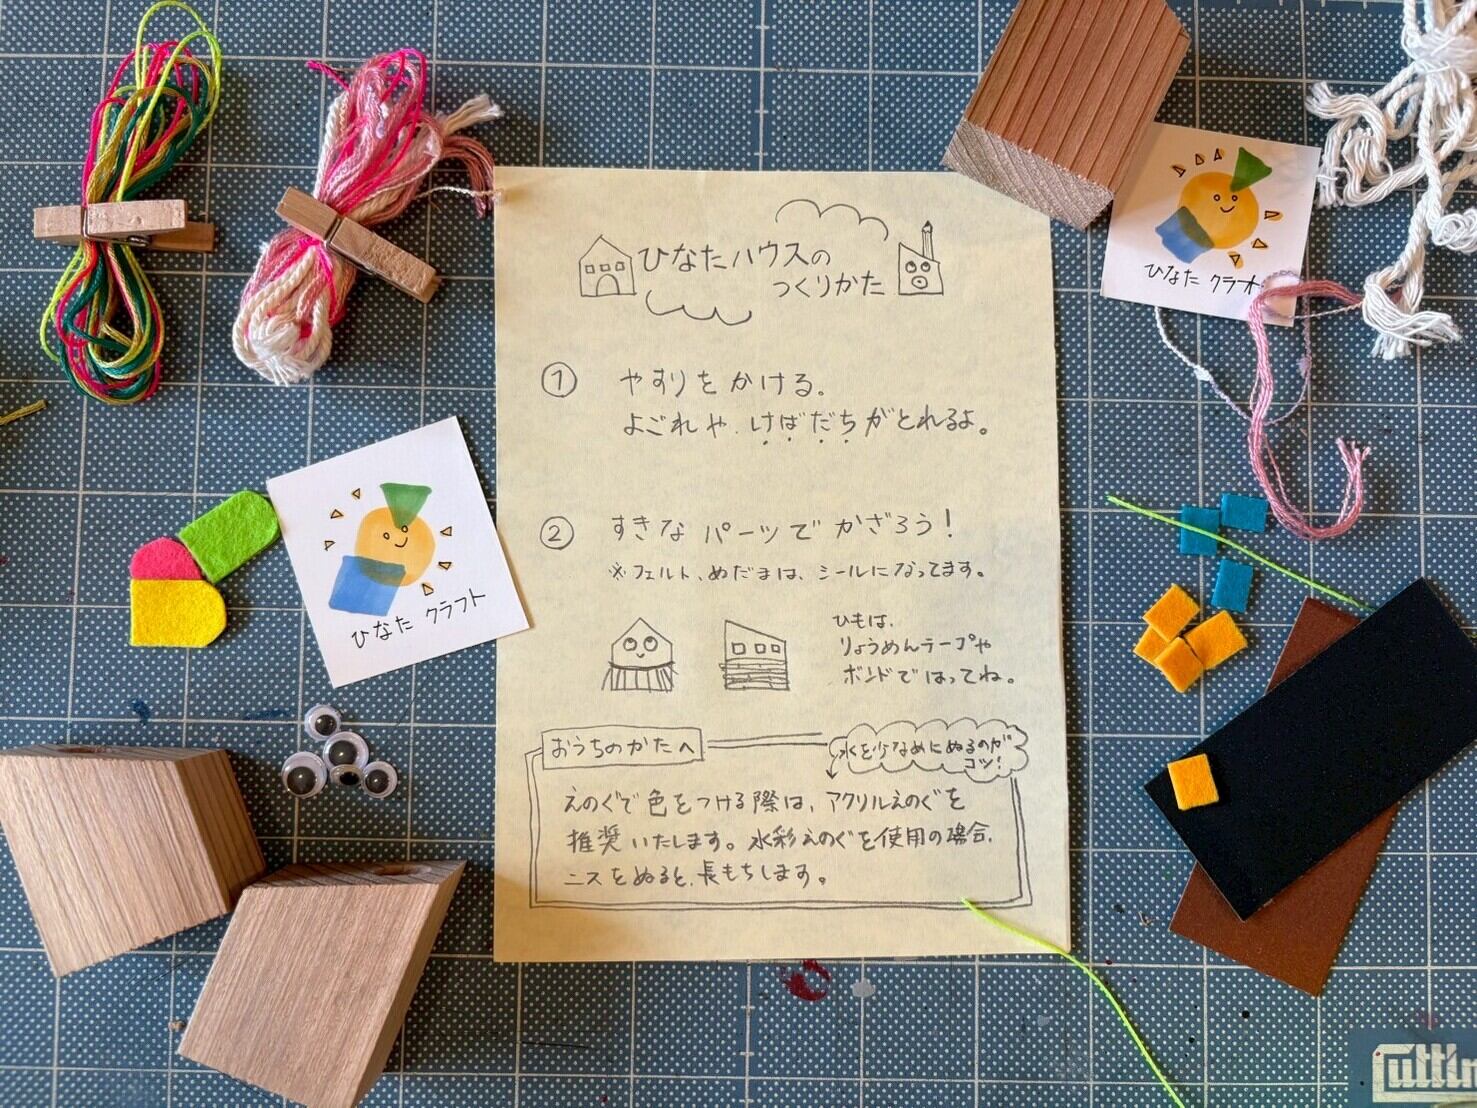 ひなたハウスの
つくりかた
① やすりをかける。
よごれや、けばだちがとれるよ。
② すきなパーツでかざろう!
※フェルト、めだまは、シールになってます。
ひもは、
りょうめんテープや
ボンドではってね。
おうちのかたへ
水を少なめにぬるのが
コツ!
えのぐで色をつける際は、アクリルえのぐを
推奨いたします。水彩えのぐを使用の場合、
ニスをぬると、長もちします。
ひなたクラフト
ひなたクラフ